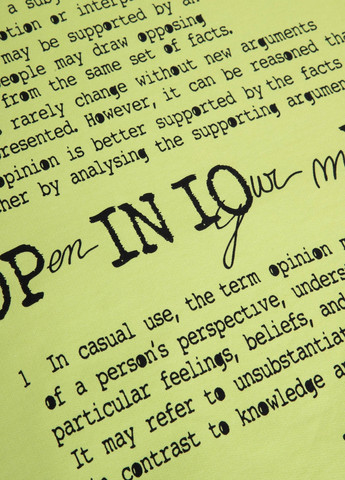 a su
otion or interp
may be supported by an
eople may draw opposing
from the same set of facts.
rarely change without new arguments
presented. However, it can be reasoned tha
opinion is better supported by the facts
her by analysing the supporting argumen
OPen IN IOyour m
1 In casual use, the term opinion m
of a person's perspective, unders
particular feelings, beliefs, and
It may refer to unsubstantiat
in contrast to knowledge a